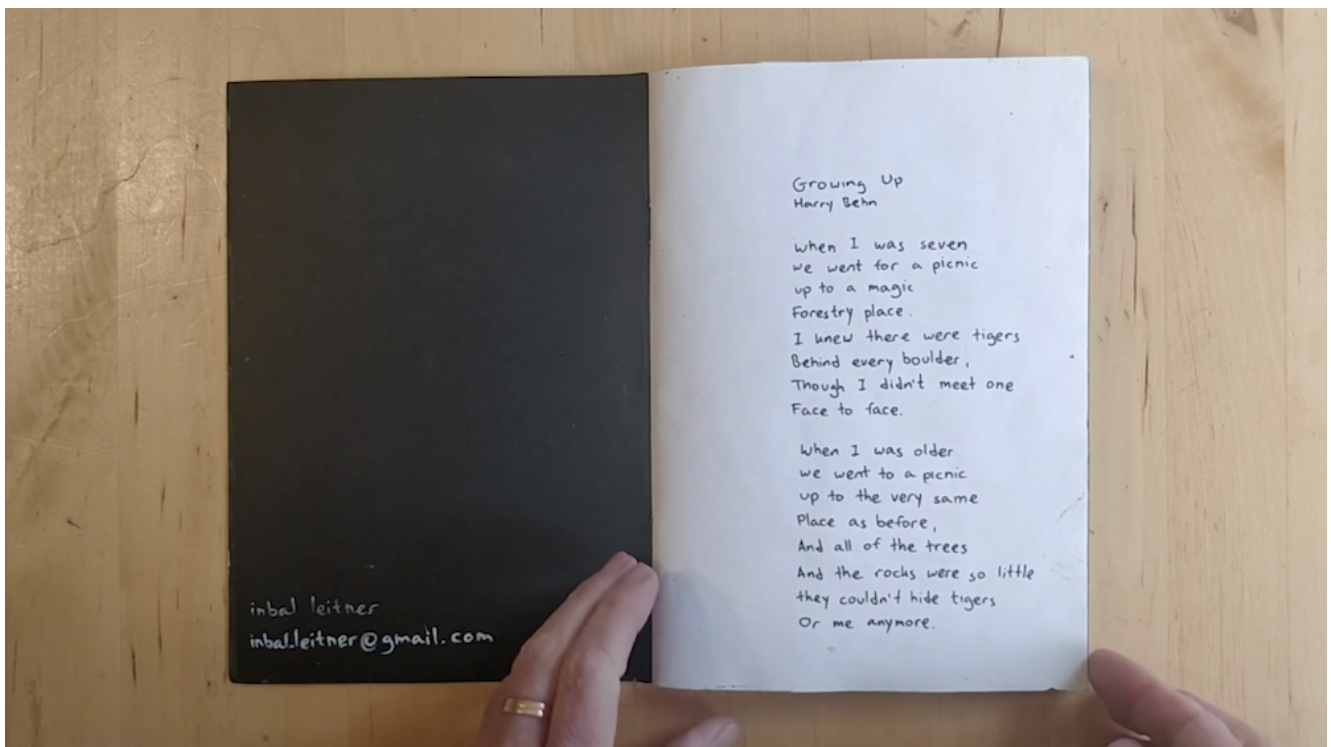 inbal leitner
inbal.leitner@gmail.com
Growing Up
Harry Behn
When I was seven
we went for a picnic
up to a magic
Forestry place.
I knew there were tigers
Behind every boulder,
Though I didn't meet one
Face to face.
When I was older
we went to a picnic
up to the very same
Place as before,
And all of the trees
And the rocks were so little
they couldn't hide tigers
Or me anymore.